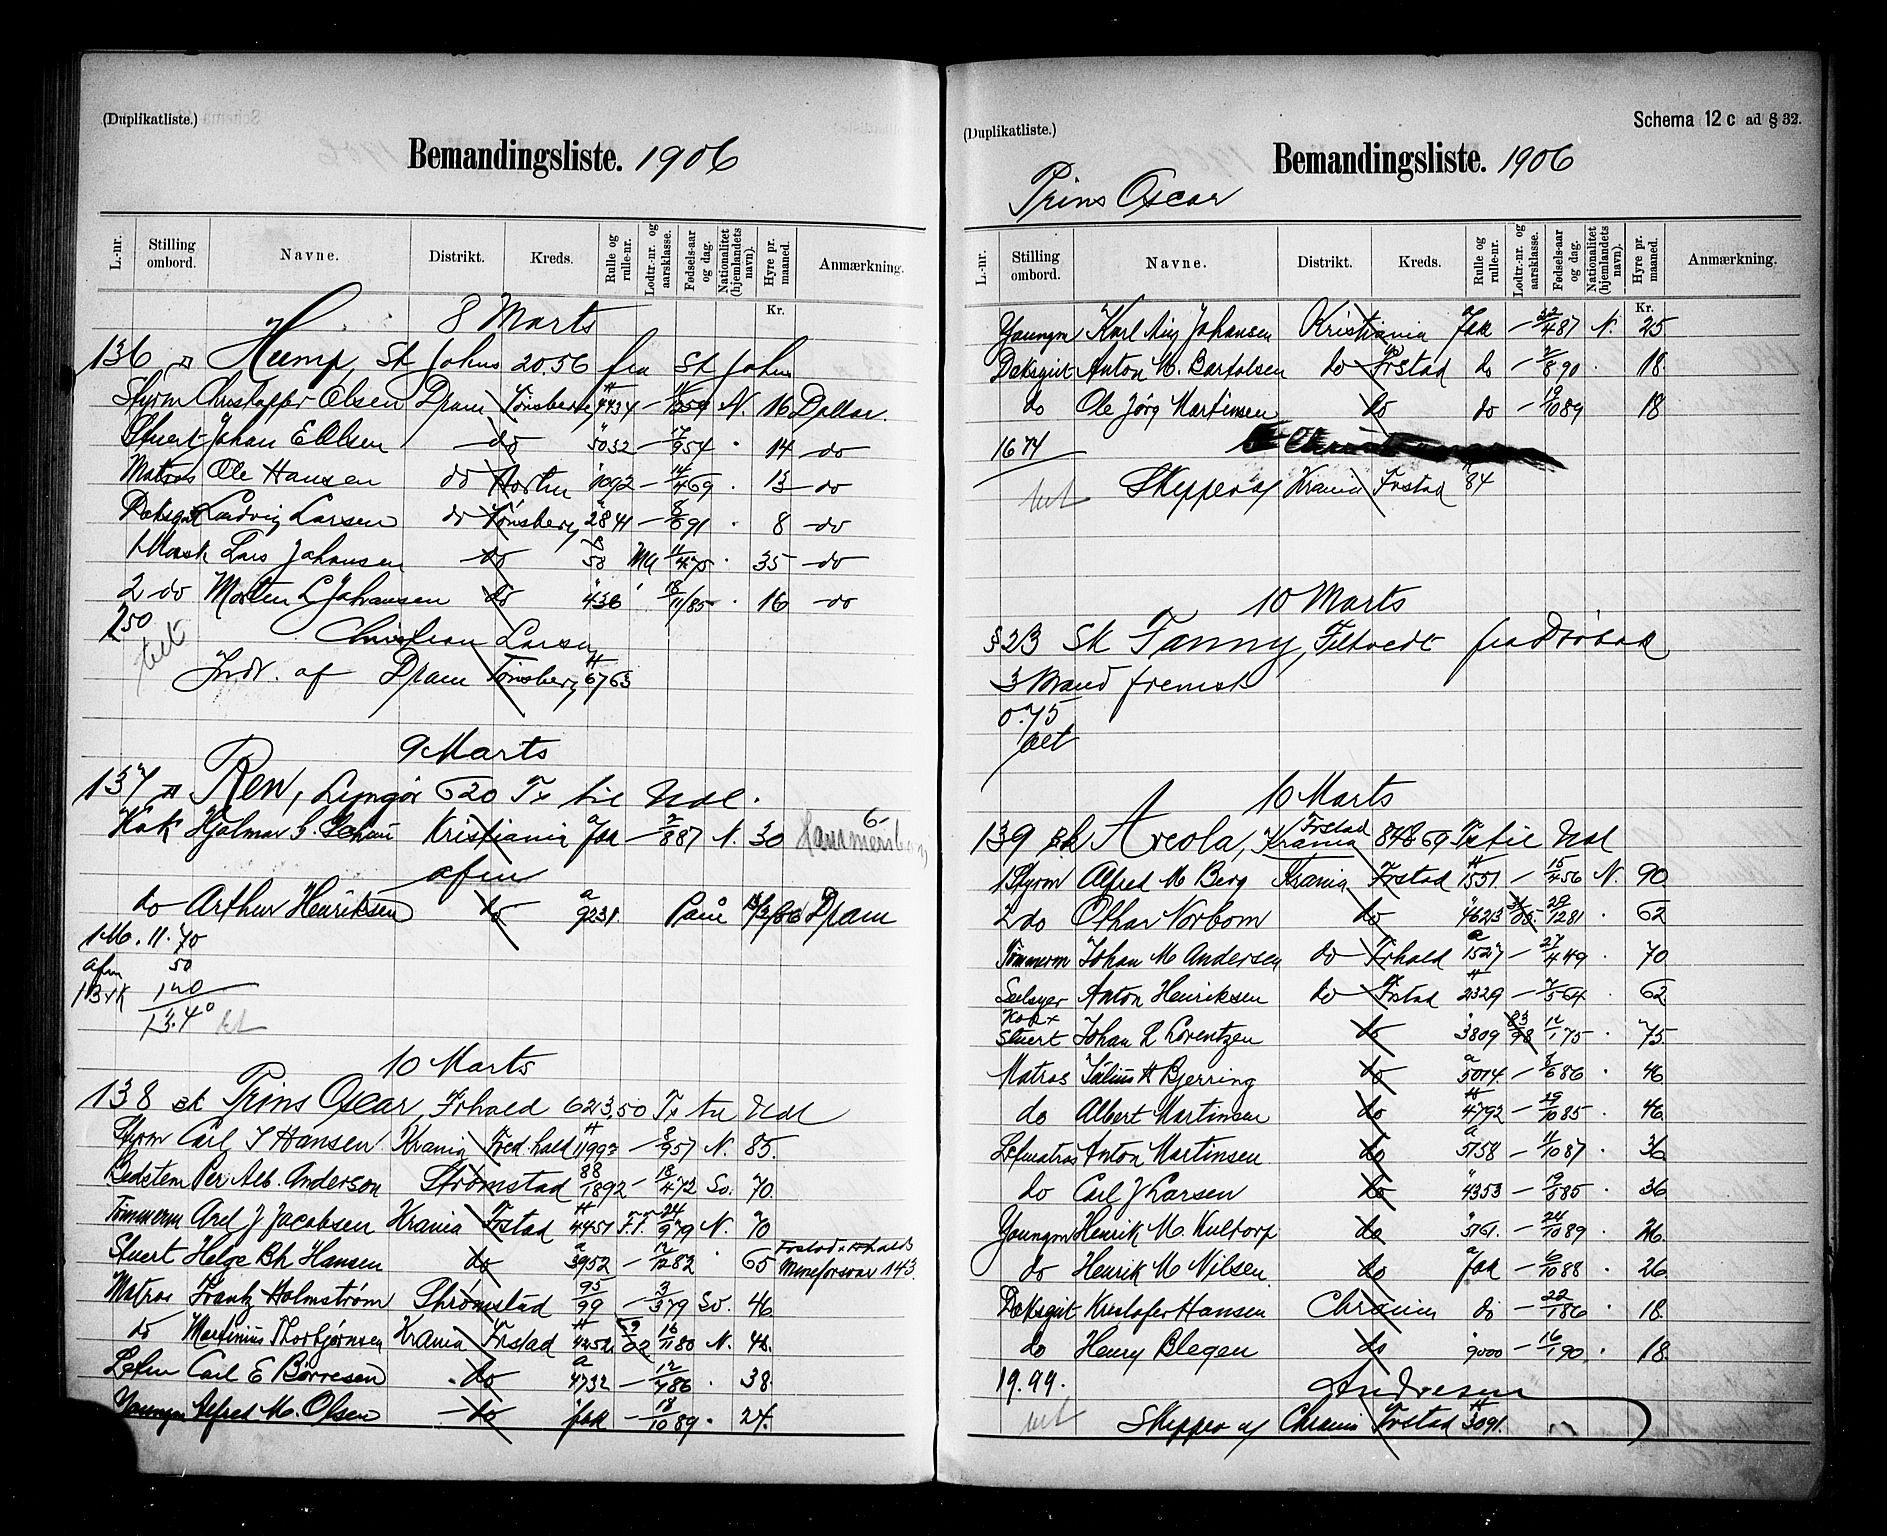 (Duplikatliste.)
Bemandingsliste. 1906
L.-nr.
Stilling ombord.
Navne.
Distrikt.
Kreds.
Rulle og rulle-nr.
Lodtr.-nr. og aarsklasse.
Fødsels-aar og dag.
Nationalitet (hjemlandets navn).
Hyre pr. maaned.
Anmærkning.
Kr.
8 Marts
136 Hump, St Johns 20.56 fra St Johns
Styrm Christoffer Olsen Dram Tønsberg 4434 — N. 16 Dollar.
Stuert Johan E Olsen do 5032 — 17/9 54 " 14 do
Matros Ole Hansen do Horten 1092 — 14/4 69 . 13 do
Dæksgut Ludvig Larsen do Tønsberg 2841 — 8/8 91 . 8 do
1 Mask Lars Johansen do 58 M 11/4 75 . 35 do
2 do Morten L Johansen do 436 18/11 85 . 16 do
1.50
Christian Larsen
Indr. af Dram Tønsberg 6763
9 Marts
137 Ren, Lyngør 620 Tx til Udl.
Kok Hjalmar S. Kristiania Jak — 2/8 87 N. 30
afm
do Arthur Henriksen do 9231 Paa 13/3/06 Dram
1 M. 11. 70
afm 50
1.20
13.40
10 Marts
138 sk Prins Oscar, Frhald 623,50 Tx til Udl
Styrm Carl S Hansen Krania Fred.hald 1199 — 8/9 57 N. 85.
Bedstem Per Alb. Anderson Strømstad 88/1892 — 18/4 72 Sv. 70.
Tømmerm Axel J Jacobsen Krania Frstad 4451 F.F. 24/9 79 N. 70
Stuert Helge Bh Hansen do 3952 — 12/12 82 " 65 Frstad Frhalds Mineforsvar 143.
Matros Frantz Holmstrøm Strømstad 95/99 — 3/3 79 Sv. 46
do Martinius Thorbjørnsen Krania Frstad 4252 12/11 80 N. 48.
Letm Carl E Børresen do 4732 — 12/4 86 . 38.
Youngm Alfred M. Olsen do Jak — 18/10 89 . 24.
(Duplikatliste.)
Schema 12 c ad § 32.
Bemandingsliste. 1906
Prins Oscar
L.-nr.
Stilling ombord.
Navne.
Distrikt.
Kreds.
Rulle og rulle-nr.
Lodtr.-nr. og aarsklasse.
Fødsels-aar og dag.
Nationalitet (hjemlandets navn).
Hyre pr. maaned.
Anmærkning.
Kr.
Youngm Karl Aug Johansen Kristiania Jak — 22/4 87 N. 25
Dæksgut Anton M. Bartolsen do Frstad do — 2/8 90 . 18.
do Ole Jørg Martinsen do do — 19/10 89 18
16 74
Skipper af Krania Frstad 84
10 Marts
§ 23 Sk Fanny, Filtvedt fra Drøbak
3 Mand fremst
0.75
10 Marts
139 sk Areola, Frstad Krania 848 69 Tx til Udl
1 Styrm Alfred M Berg Krania Frstad 1551 — 15/4 56 N. 90
2 do Othar Norbom do 4623 29/12 81 . 62
Tømmerm Johan M Andersen do Frhald 1527 — 27/4 49 . 70
Seilmager Anton Henriksen do Frstad 2329 — 7/5 64 . 62
Kok x Stuert Johan L Lorentzen do 3809 83/98 12/1 75 . 75
Matros Julius A Bjerring do 5014. — 8/6 86 . 46
do Albert Martinsen do 4792 — 29/10 85 . 46.
Letmatros Anton Martinsen do 5758 — 11/10 87 . 36
do Carl J Larsen do 4353 — 19/5 85 . 36
Youngm Henrik M. Kultorp do 5761. — 24/10 89 . 26.
do Henrik M Nilsen. do Jak — 6/10 88 . 26
Dæksgut Kristofer Hansen Chrania do — 22/1 86 . 18.
do Henry Blegen do 9000 — 16/1 90 . 18.
19.99.
Andresen
Skipper af Chrania Frstad 3091.